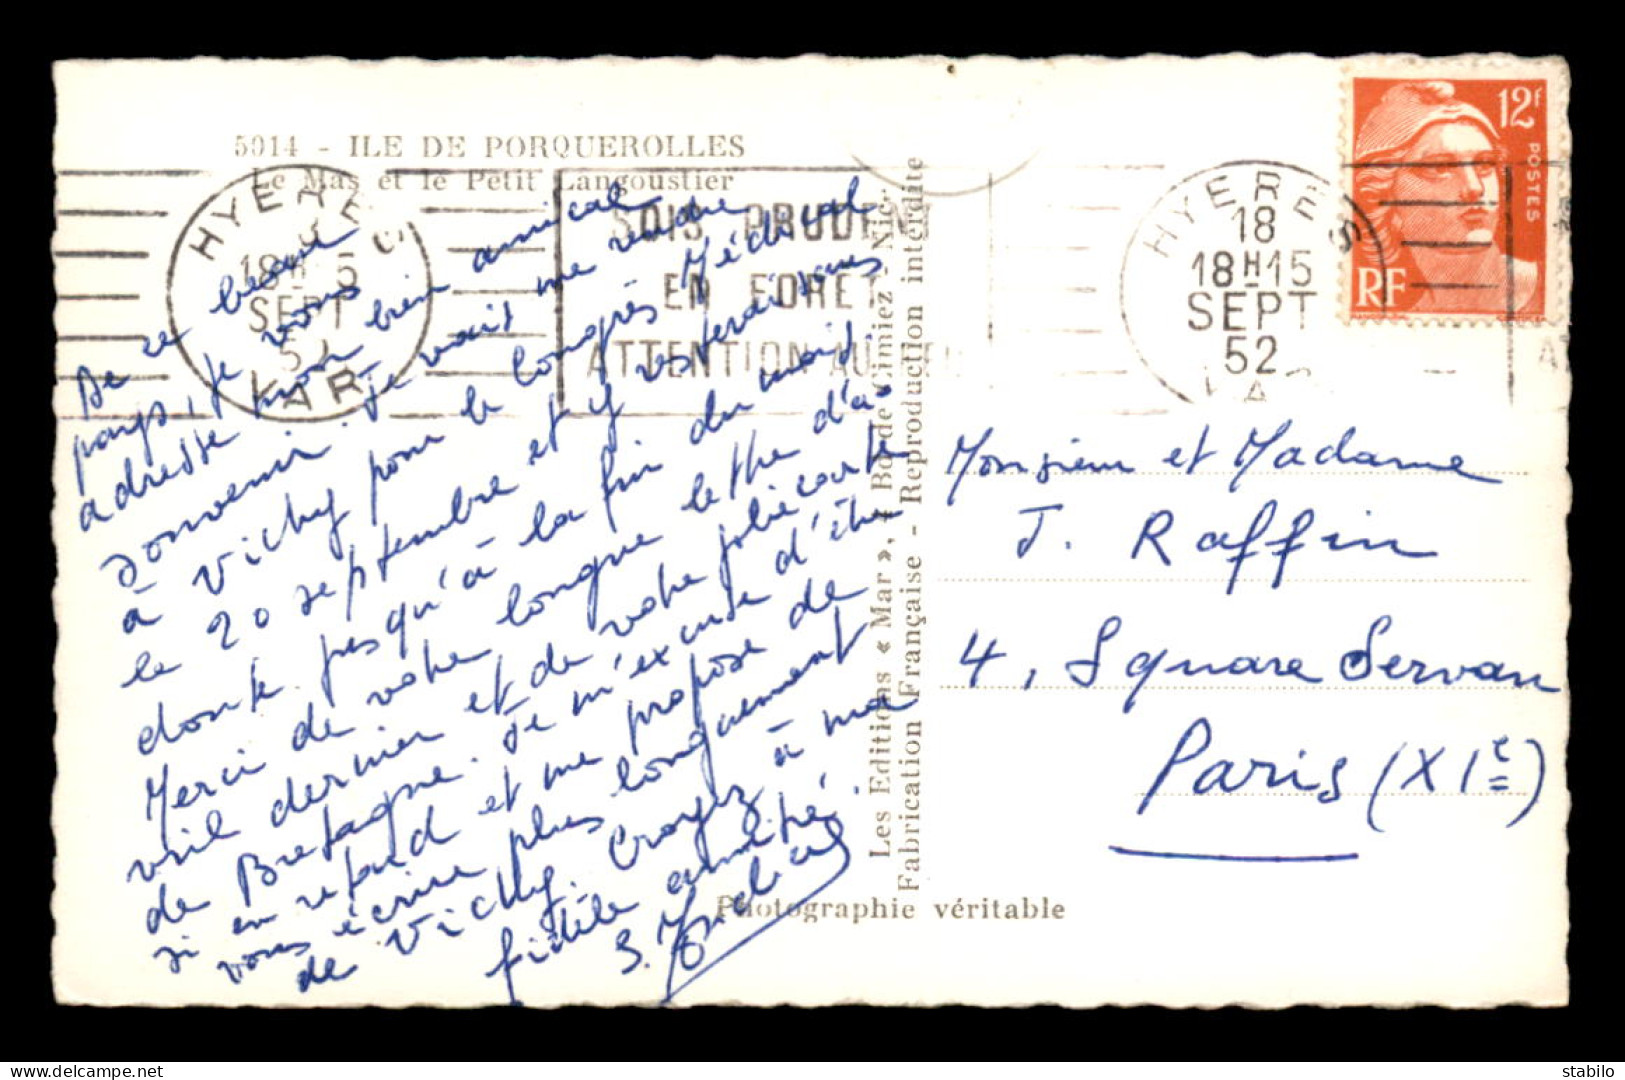 5014 - ILE DE PORQUEROLLES
Le Mas et le Petit Langoustier
HYERES
18H15
SEPT
52
VAR
SOIS PRUDENT
EN FORET
ATTENTION AU FEU
HYERES
18
18H15
SEPT
52
VAR
12f
POSTES
RF
De ce beau
pays, je vous
adresse mon bien amical
souvenir. Je vais me rendre
à Vichy pour le Congrès Médical
le 20 septembre et y resterai sans
doute jusqu'à la fin du mois.
Merci de votre longue lettre d'a-
vril dernier et de votre jolie carte
de Bretagne. Je m'excuse d'être
si en retard et me propose de
vous écrire plus longuement
de Vichy. Croyez à ma
fidèle amitié.
Les Editions « Mar », 1 Bd de Cimiez - Nice
Fabrication Française - Reproduction interdite
Photographie véritable
Monsieur et Madame
J. Raffin
4, Square Servan
Paris (XIe)
delcampe.net
stabilo